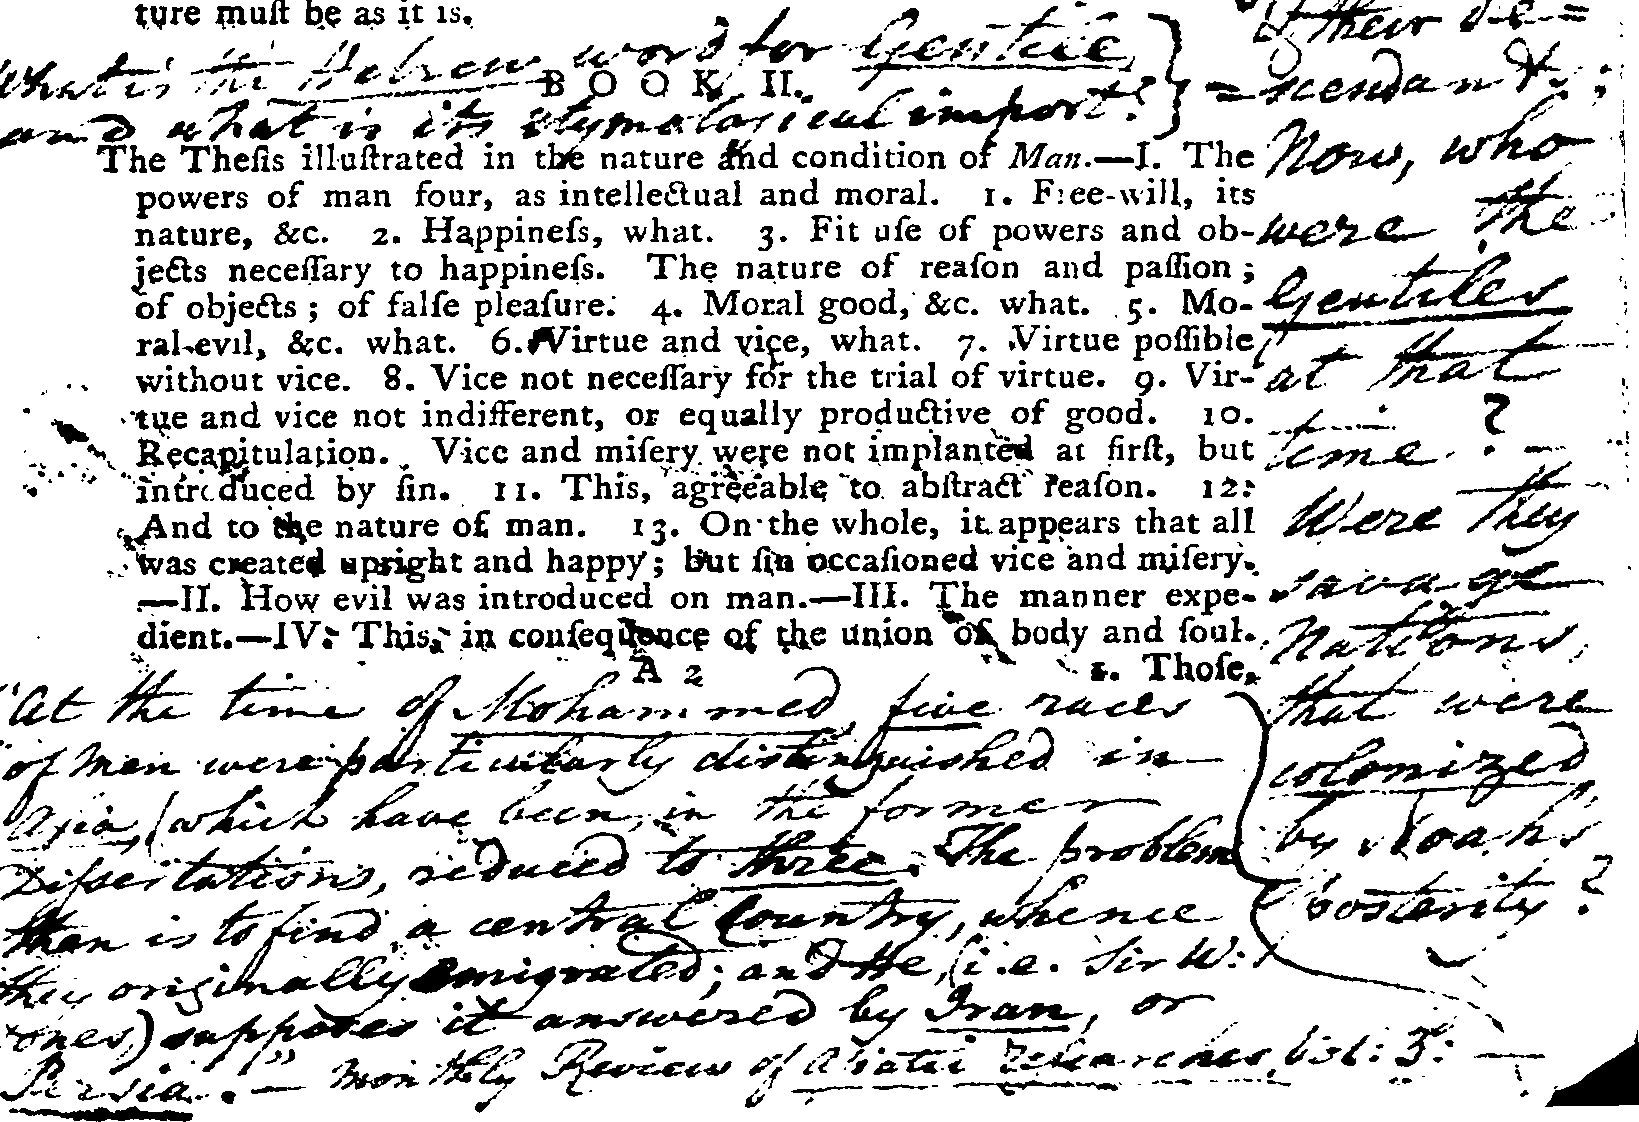 ture muſt be as it is.
What is the Hebrew word for Gentile,
BOOK II.
and what is its etymological import?
The Theſis illuſtrated in the nature and condition of Man.—I. The
powers of man four, as intellectual and moral. 1. Free-will, its
nature, &c. 2. Happineſs, what. 3. Fit uſe of powers and ob-
jects neceſſary to happineſs. The nature of reaſon and paſſion;
of objects; of falſe pleaſure. 4. Moral good, &c. what. 5. Mo-
ral evil, &c. what. 6. Virtue and vice, what. 7. Virtue poſſible
without vice. 8. Vice not neceſſary for the trial of virtue. 9. Vir-
tue and vice not indifferent, or equally productive of good. 10.
Recapitulation. Vice and miſery were not implanted at firſt, but
introduced by ſin. 11. This, agreeable to abſtract reaſon. 12.
And to the nature of man. 13. On the whole, it appears that all
was created upright and happy; but ſin occaſioned vice and miſery.
—II. How evil was introduced on man.—III. The manner expe-
dient.—IV. This, in conſequence of the union of body and ſoul.
A 2
1. Thoſe,
"At the time of Mohammed, five races
of Men were particularly distinguished in
Asia, (which have been, in the former
Diſsertations, reduced to three. The problem
then is to find a central Country, whence
they originally emigrated; and He, (i.e. Sir W:
Jones,) supposes it answered by Iran, or
Persia."— Monthly Review of Asiatic Researches, Vol: 3:—
of their de=
=scendants;
Now, who
were the
Gentiles
at that
time?
Were they
savage
Nations,
that were
colonized
by Noah's
posterity?